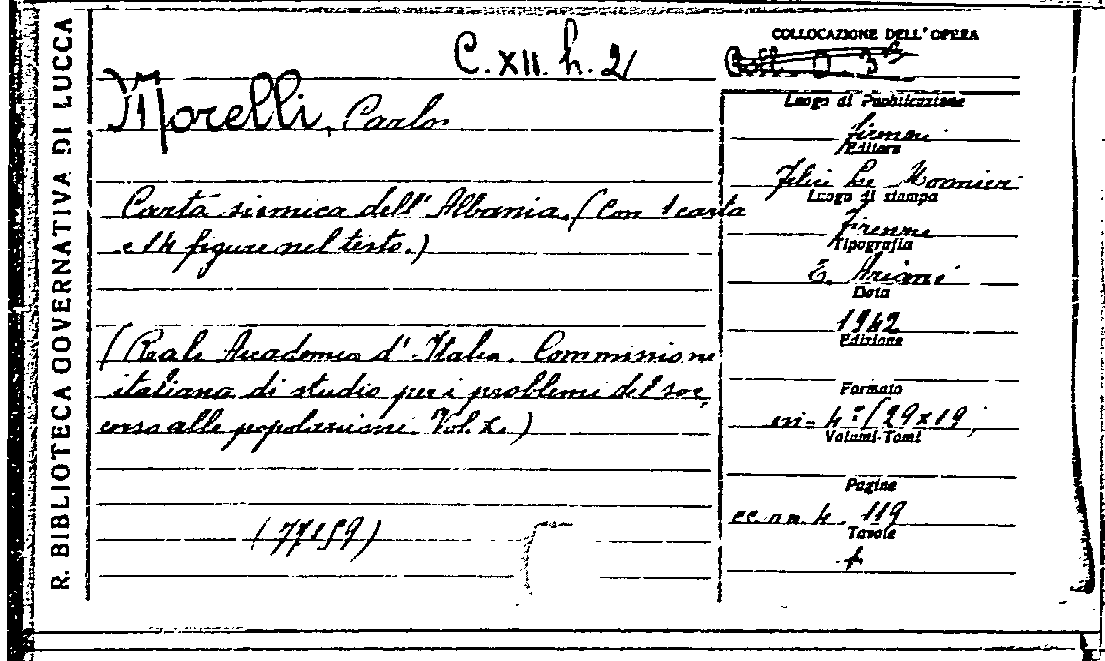 R. BIBLIOTECA GOVERNATIVA DI LUCCA
C. XII. h. 2
COLLOCAZIONE DELL' OPERA
Morelli, Carlo
Carta sismica dell' Albania. (Con 1 carta
e 14 figure nel testo.)
(Reale Accademia d' Italia. Commissione
italiana di studio per i problemi del soc,
corso alle popolazioni. Vol. X.)
(77159)
Luogo di Pubblicazione
Firenze
Editore
Felice Le Monnier
Luogo di stampa
Firenze
Tipografia
E. Ariani
Data
1942
Edizione
Formato
in- 4° (29x19)
Volumi-Tomi
Pagine
cc. n. n. 4. 119
Tavole
1